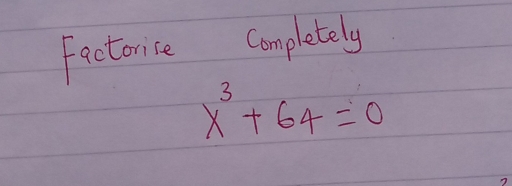 Factorise Completely
x³ + 64 = 0